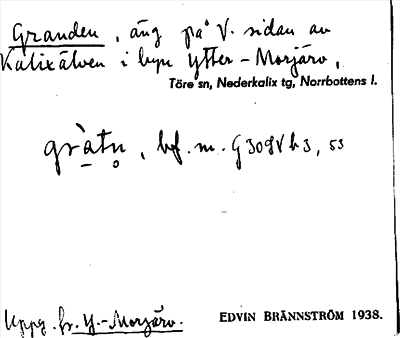 Granden, äng på V. sidan av
Kalixälven i byn Ytter-Morjärv.
Töre sn, Nederkalix tg, Norrbottens l.
bf. m. G 309 V h 3, 53
Uppg. fr. Y.-Morjärv.
EDVIN BRÄNNSTRÖM 1938.